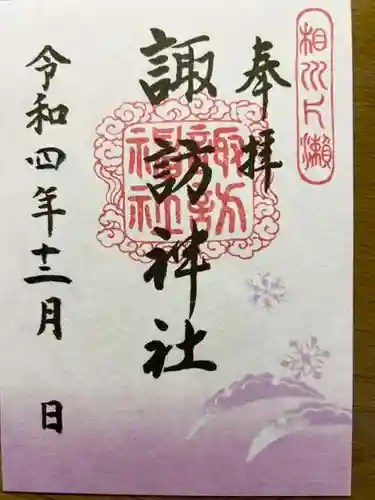 相州片瀬
奉拝
諏訪神社
諏訪神社
令和四年十二月 日